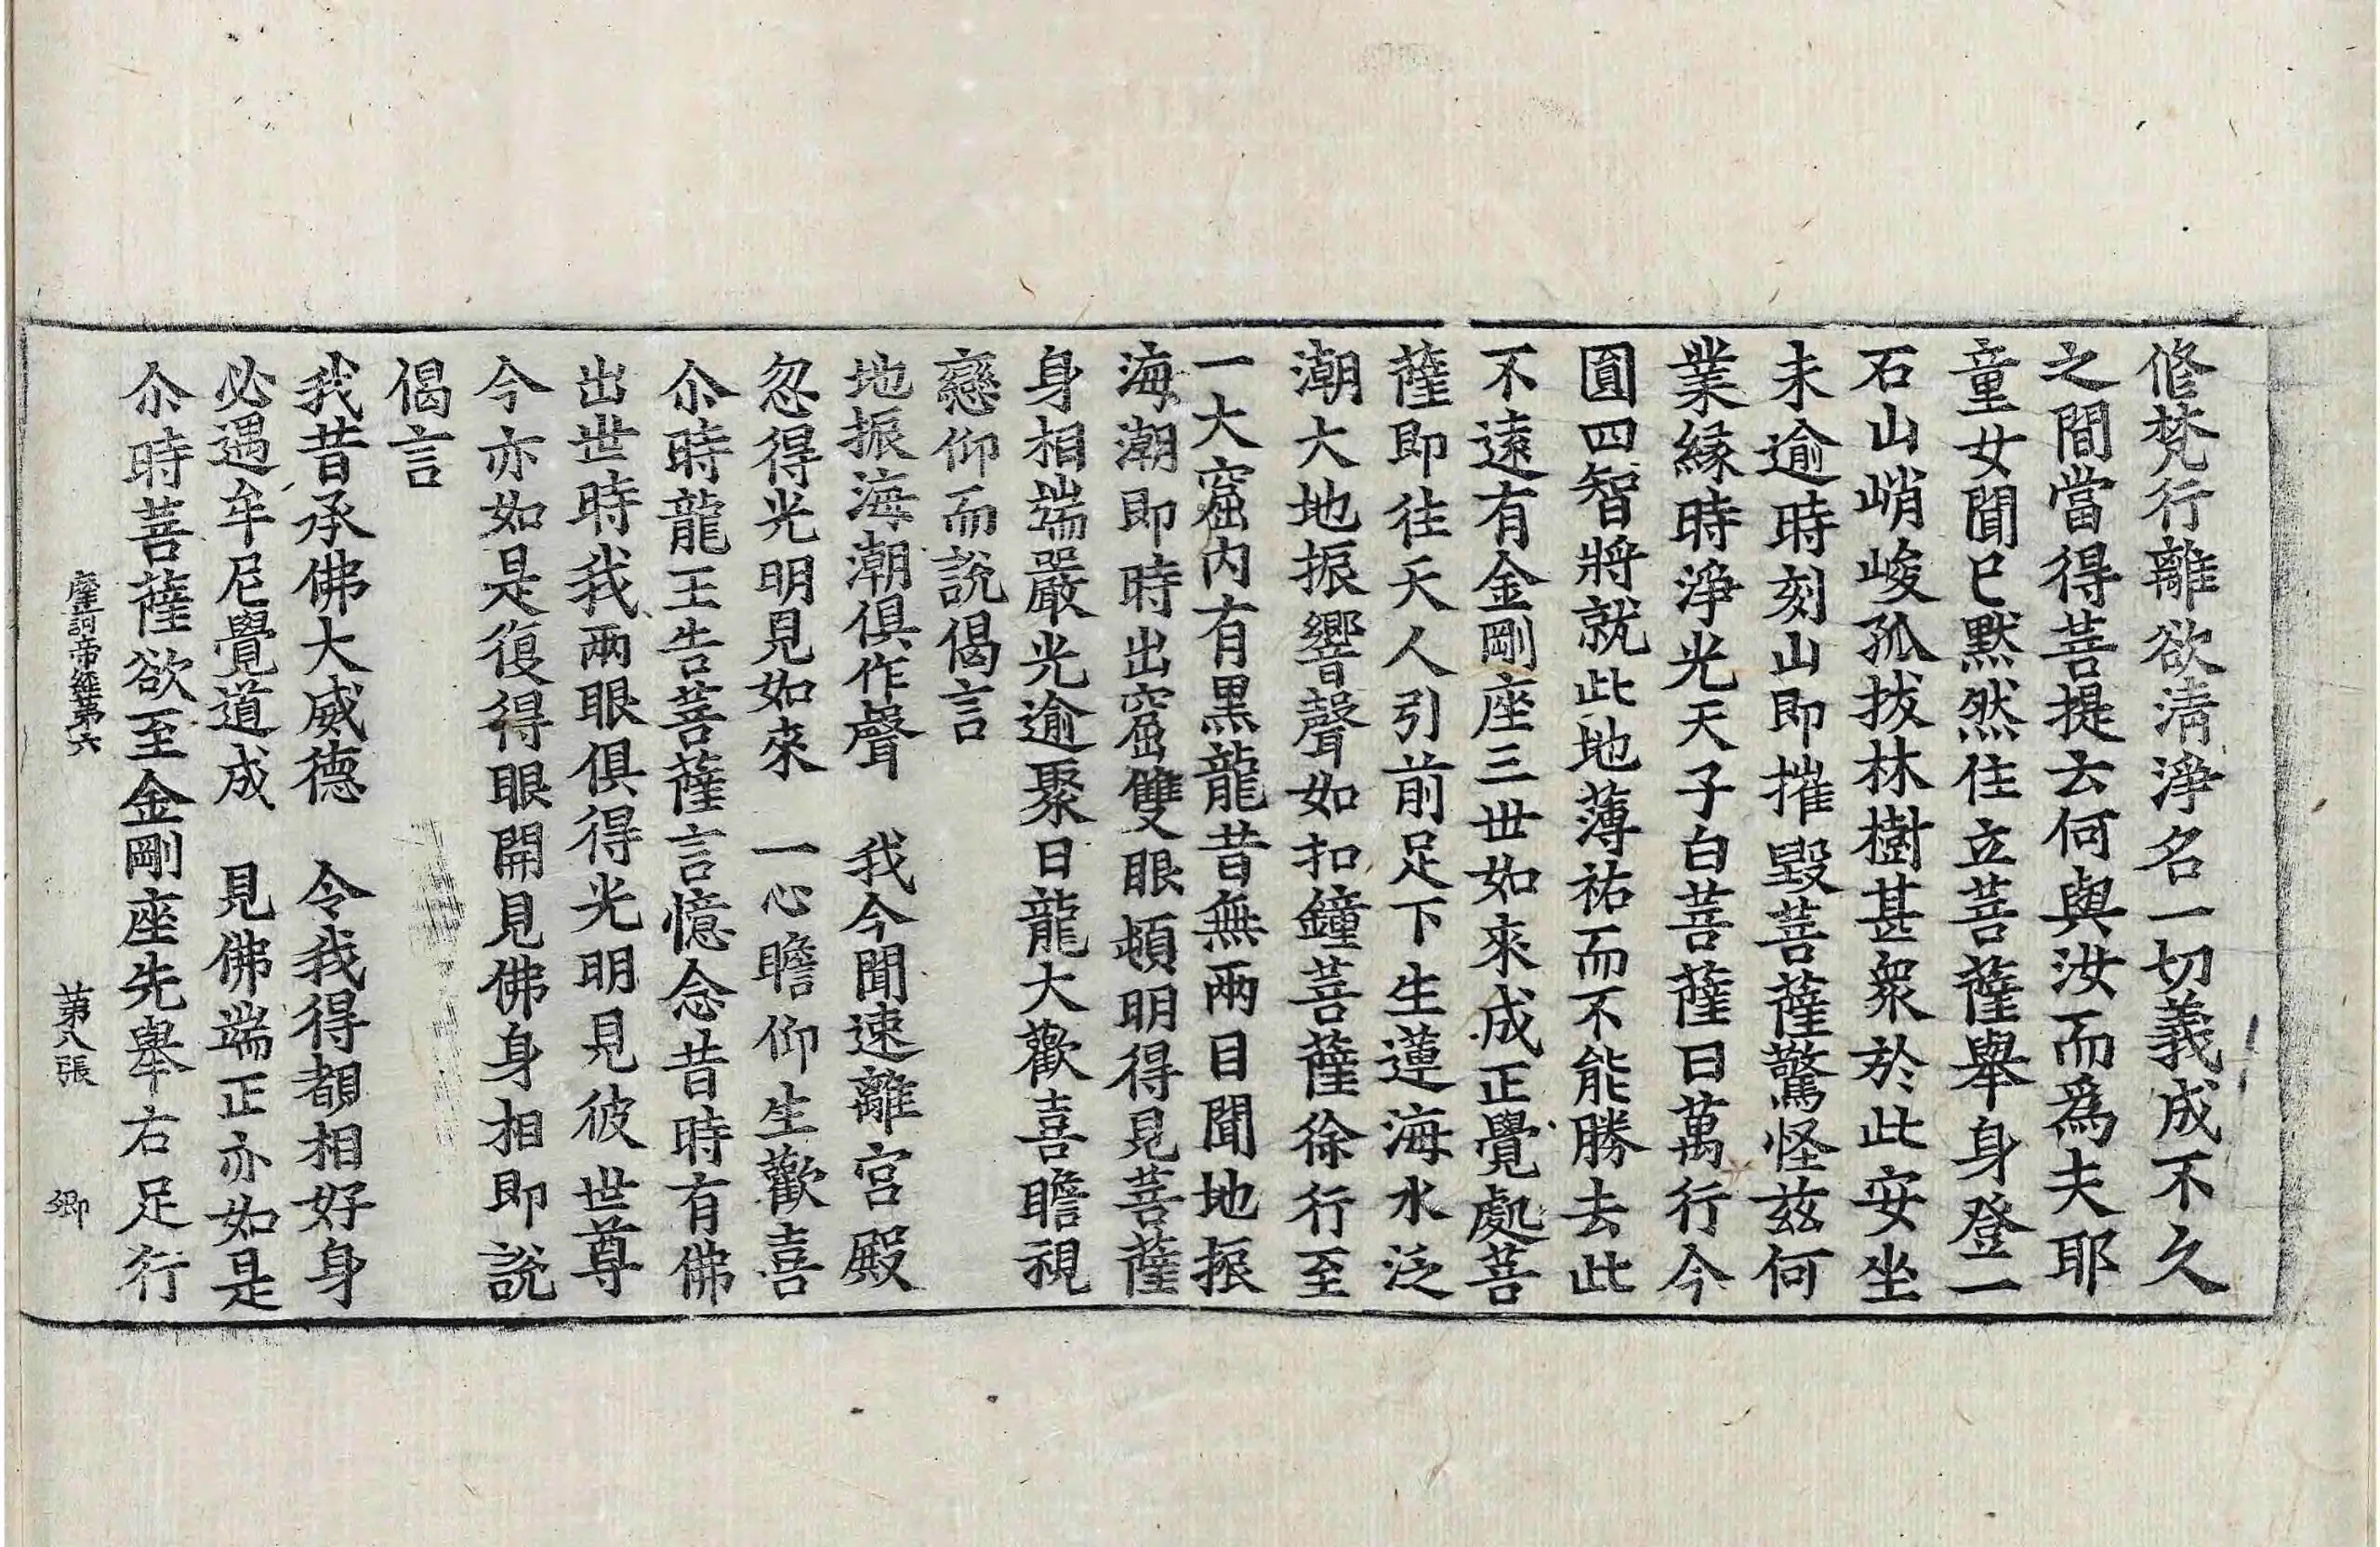 修梵行離欲清淨名一切義成不久
之間當得菩提去何與汝而爲夫耶
童女聞已默然住立菩薩舉身登一
石山峭峻孤拔林樹甚衆於此安坐
未逾時刻山即摧毀菩薩驚怪茲何
業緣時淨光天子白菩薩曰萬行今
圓四智將就此地薄祐而不能勝去此
不遠有金剛座三世如來成正覺處菩
薩即往天人引前足下生蓮海水泛
潮大地振響聲如扣鐘菩薩徐行至
一大窟內有黑龍昔無兩目聞地振
海潮即時出窟雙眼頓明得見菩薩
身相端嚴光逾聚日龍大歡喜瞻視
戀仰而說偈言
地振海潮俱作聲　我今聞速離宮殿
忽得光明見如來　一心瞻仰生歡喜
尒時龍王告菩薩言憶念昔時有佛
出世時我兩眼俱得光明見彼世尊
今亦如是復得眼開見佛身相即說
偈言
我昔承佛大威德　令我得覩相好身
必遇牟尼覺道成　見佛端正亦如是
尒時菩薩欲至金剛座先舉右足行
摩訶帝經第六　第八張　鄉